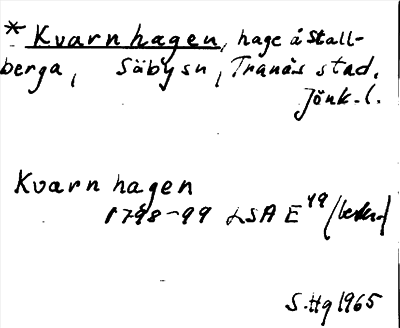 * Kvarnhagen, hage å Stall-
berga, Säbysn, Tranås stad.
Jönk. l.
Kvarnhagen
1798-99 LSA E 49
S. Hg 1965